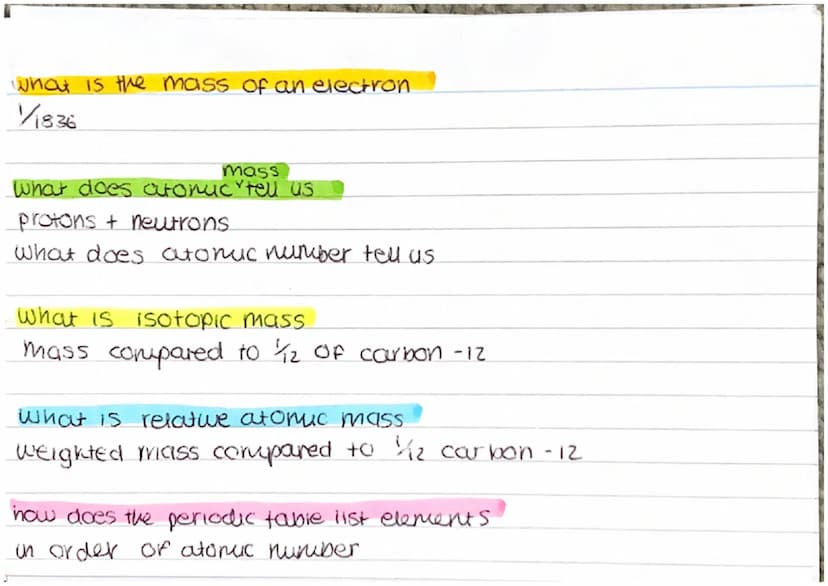 what is the mass of an electron
1/1836
what does atomic mass tell us
protons + neutrons
what does atomic number tell us
what is isotopic mass
mass compared to 1/12 of carbon -12
what is relative atomic mass
weighted mass compared to 1/12 carbon -12
how does the periodic table list elements
in order of atomic number